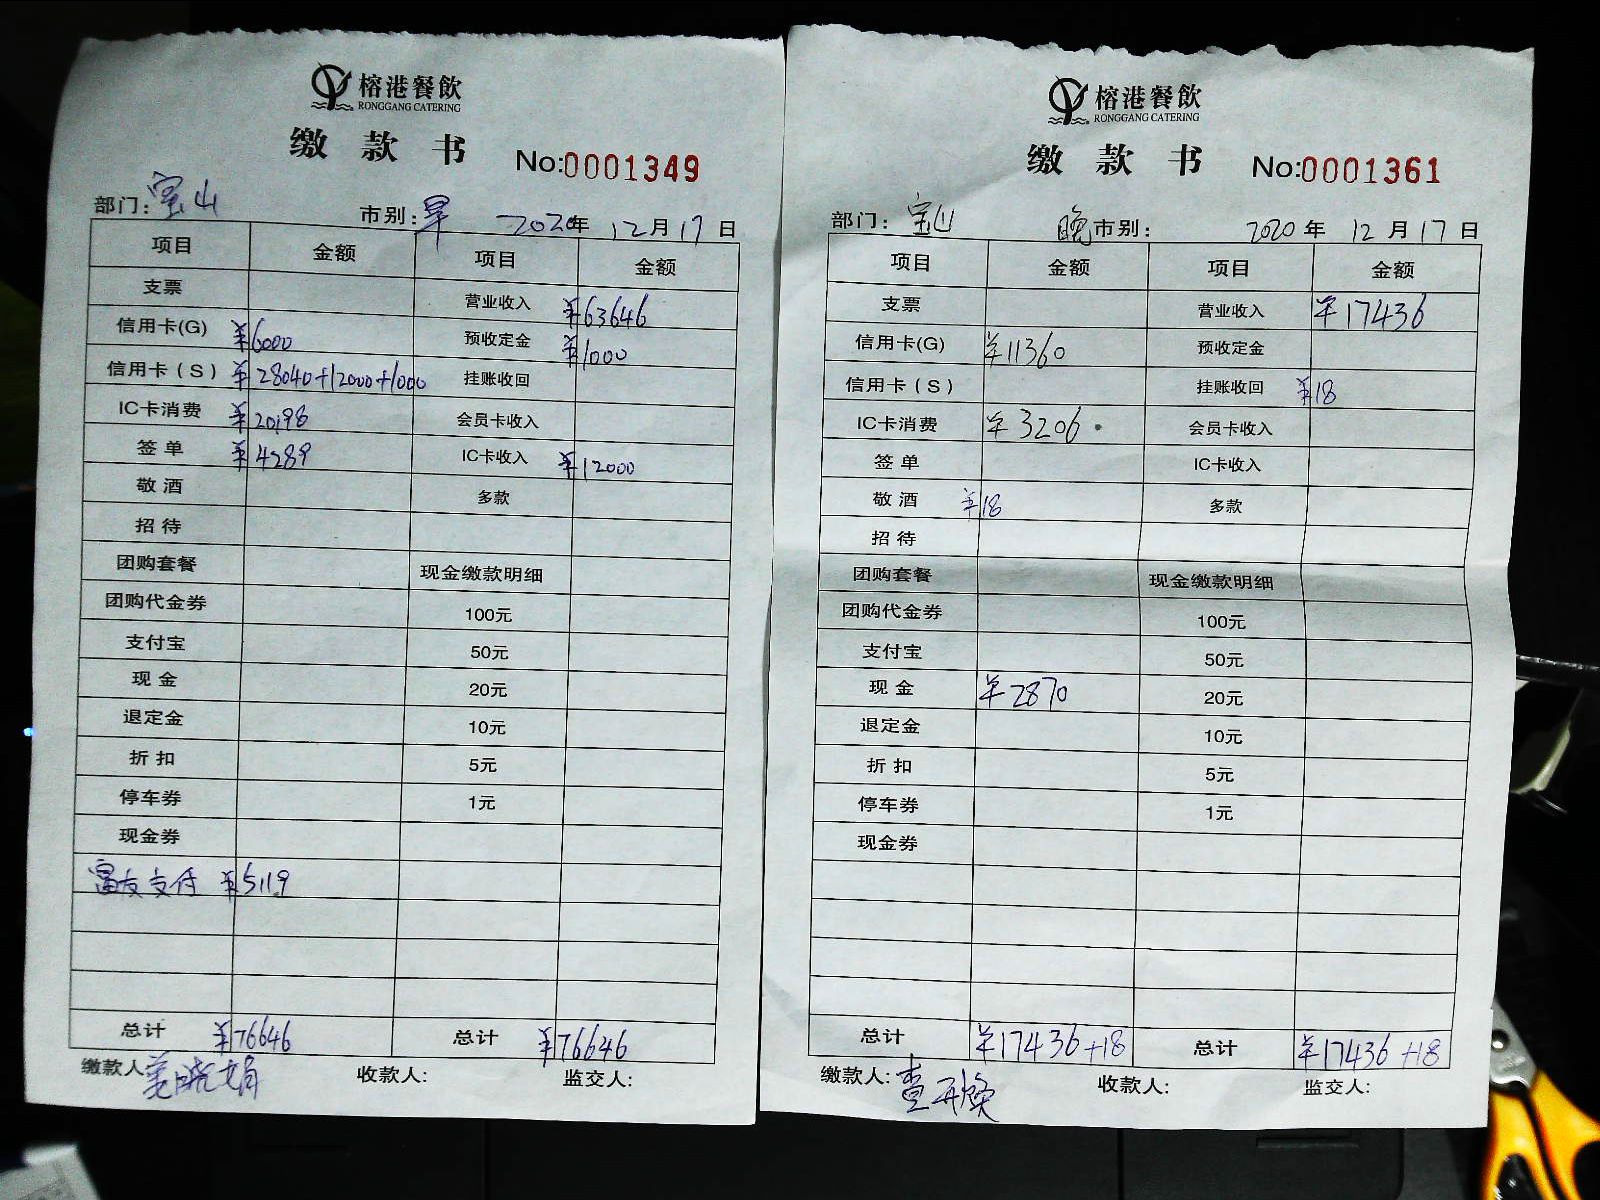 榕港餐飲
RONGGANG CATERING
缴款书 No:0001349
部门:宝山 市别:早 2020年12月17日
项目 金额 项目 金额
支票 营业收入 ¥63646
信用卡(G) ¥6000 预收定金 ¥1000
信用卡(S) ¥28040+12000+1000 挂账收回
IC卡消费 ¥20198 会员卡收入
签单 ¥4289 IC卡收入 ¥12000
敬酒 多款
招待
团购套餐 现金缴款明细
团购代金券 100元
支付宝 50元
现金 20元
退定金 10元
折扣 5元
停车券 1元
现金券
富友支付 ¥5119
总计 ¥76646 总计 ¥76646
缴款人: 收款人: 监交人:
榕港餐飲
RONGGANG CATERING
缴款书 No:0001361
部门:宝山 晚市别: 2020年12月17日
项目 金额 项目 金额
支票 营业收入 ¥17436
信用卡(G) ¥11360 预收定金
信用卡(S) 挂账收回 ¥18
IC卡消费 ¥3206. 会员卡收入
签单 IC卡收入
敬酒 ¥18 多款
招待
团购套餐 现金缴款明细
团购代金券 100元
支付宝 50元
现金 ¥2870 20元
退定金 10元
折扣 5元
停车券 1元
现金券
总计 ¥17436+18 总计 ¥17436+18
缴款人: 收款人: 监交人: